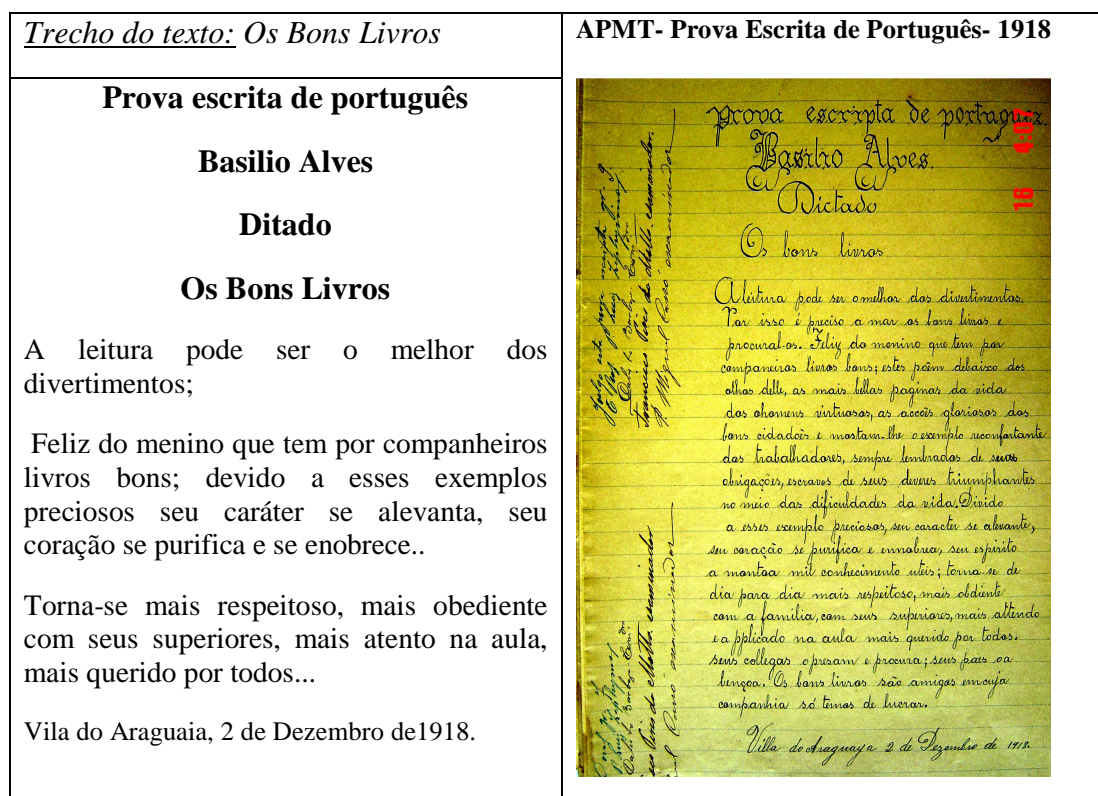 Trecho do texto: Os Bons Livros
Prova escrita de português
Basilio Alves
Ditado
Os Bons Livros
A leitura pode ser o melhor dos
divertimentos;
Feliz do menino que tem por companheiros
livros bons; devido a esses exemplos
preciosos seu caráter se alevanta, seu
coração se purifica e se enobrece..
Torna-se mais respeitoso, mais obediente
com seus superiores, mais atento na aula,
mais querido por todos...
Vila do Araguaia, 2 de Dezembro de1918.
APMT- Prova Escrita de Português- 1918
prova escripta de portuguez
Basilio Alves.
Dictado
Os bons livros
A leitura pode ser omelhor dos divertimentos.
Por isso é preciso a mar os bons livros e
procural-os. Feliz do menino que tem por
companeiros livros bons; estes poêm debaixo dos
olhos delle, as mais bellas paginas da vida
dos ohomens virtuosos, as accoēs gloriosas dos
bons cidadoēs e mostam-lhe o exemplo reconfortante
dos trabalhadores, sempre lembrados de seuas
obrigações, escravos de seus deveres triumphantes
no meio das dificuldades da vida. Divido
a esses exemplo preciosos, seu caracter se alevante,
seu coração se purifica e ennobrece, seu espirito
a montoa mil conhecimento uteis; torna se de
dia para dia mais respeitoso, mais obdiente
com a familia, com seus superiores, mais attendo
e a pplicado na aula mais querido por todos.
seus collegas opresam e procura; seus paes oa
bençoa. Os bons livros são amigos emcuja
companhia só temos de lucrar.
Villa do Araguaya 2 de Dezembro de 1918.
examinador
P. Miguel
examinador
16 4:0